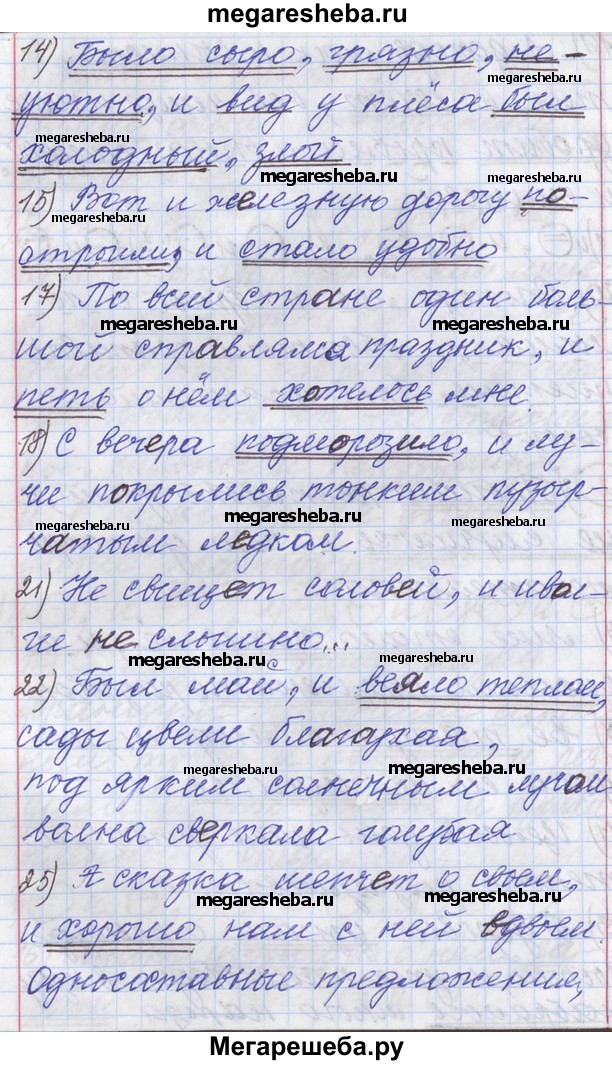 megaresheba.ru
14) Было сыро, грязно, не-
уютно, и вид у плёса был
megaresheba.ru
megaresheba.ru
холодный, злой
megaresheba.ru
megaresheba.ru
15) Вот и железную дорогу по-
строили, и стало удобно
17) По всей стране один боль-
megaresheba.ru
megaresheba.ru
шой справляла праздник, и
петь о нём хотелось мне.
18) С вечера подморозило, и лу-
жи покрылись тонким пузыр-
megaresheba.ru
megaresheba.ru
megaresheba.ru
чатым ледком.
21) Не свищет соловей, и ивол-
ги не слышно...
megaresheba.ru
megaresheba.ru
22) Был май, и веяло теплом,
сады цвели благоухая,
megaresheba.ru
megaresheba.ru
под ярким солнечным лучом
волна сверкала голубая
25) А сказка шепчет о своем,
megaresheba.ru
megaresheba.ru
и хорошо нам с ней вдвоем.
Односоставные предложения,
Мегарешеба.ру